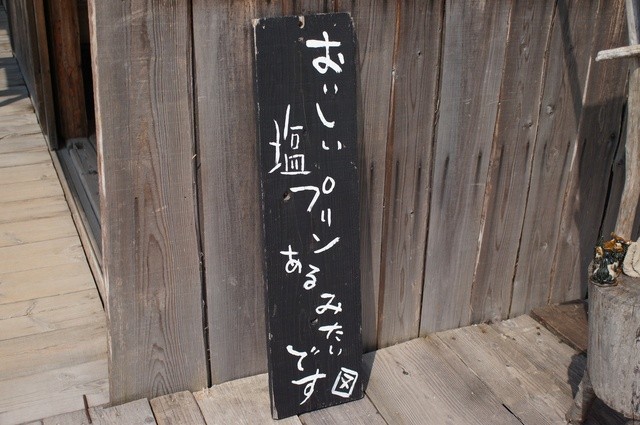 おいしい
塩プリン
あるみたい
です